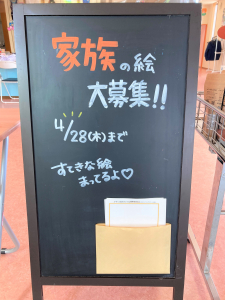 家族の絵
大募集!!
4/28(木)まで
すてきな絵
まってるよ♡